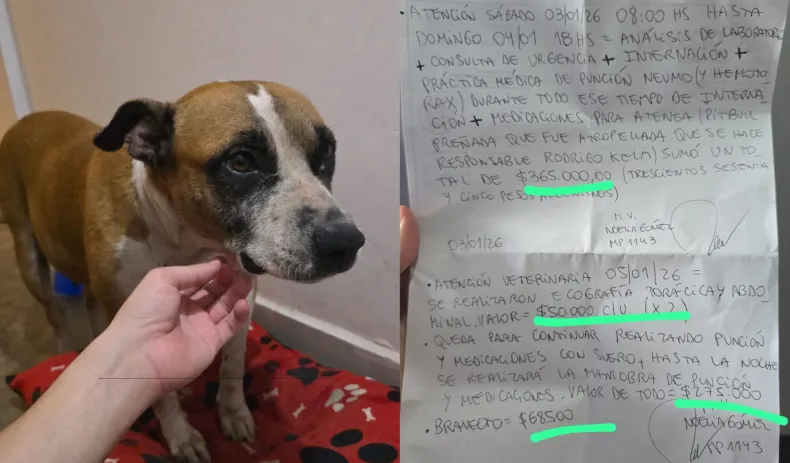 • ATENCIÓN SÁBADO 03/01/26 08:00 HS HASTA
DOMINGO 04/01 18HS = ANÁLISIS DE LABORATORIO
+ CONSULTA DE URGENCIA + INTERNACIÓN +
PRÁCTICA MÉDICA DE PUNCIÓN NEUMO(Y HEMOTO
RAX) DURANTE TODO ESE TIEMPO DE INTERNA
CIÓN + MEDICACIONES PARA ATENEA (PITBULL
PREÑADA QUE FUE ATROPELLADA QUE SE HACE
RESPONSABLE RODRIGO KELM) SUMÓ UN TO
TAL DE $365.000,00 (TRESCIENTOS SESENTA
Y CINCO PESOS ARGENTINOS)
M.V.
NOELIA GÓMEZ
MP 1143
03/01/26
• ATENCIÓN VETERINARIA 05/01/26 =
SE REALIZARON ECOGRAFÍA TORÁCICA Y ABDO
MINAL. VALOR = $50.000 C/U (X2)
• QUEDA PARA CONTINUAR REALIZANDO PUNCIÓN
Y MEDICACIONES CON SUERO, HASTA LA NOCHE
SE REALIZARÁ LA MANIOBRA DE PUNCIÓN
Y MEDICACIONES. VALOR DE TODO = $275.000
• BRAVECTO = $68500
NOELIA GÓMEZ
MP 1143